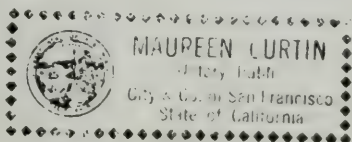 MAUREEN CURTIN
Notary Public
City & Co. of San Francisco
State of California